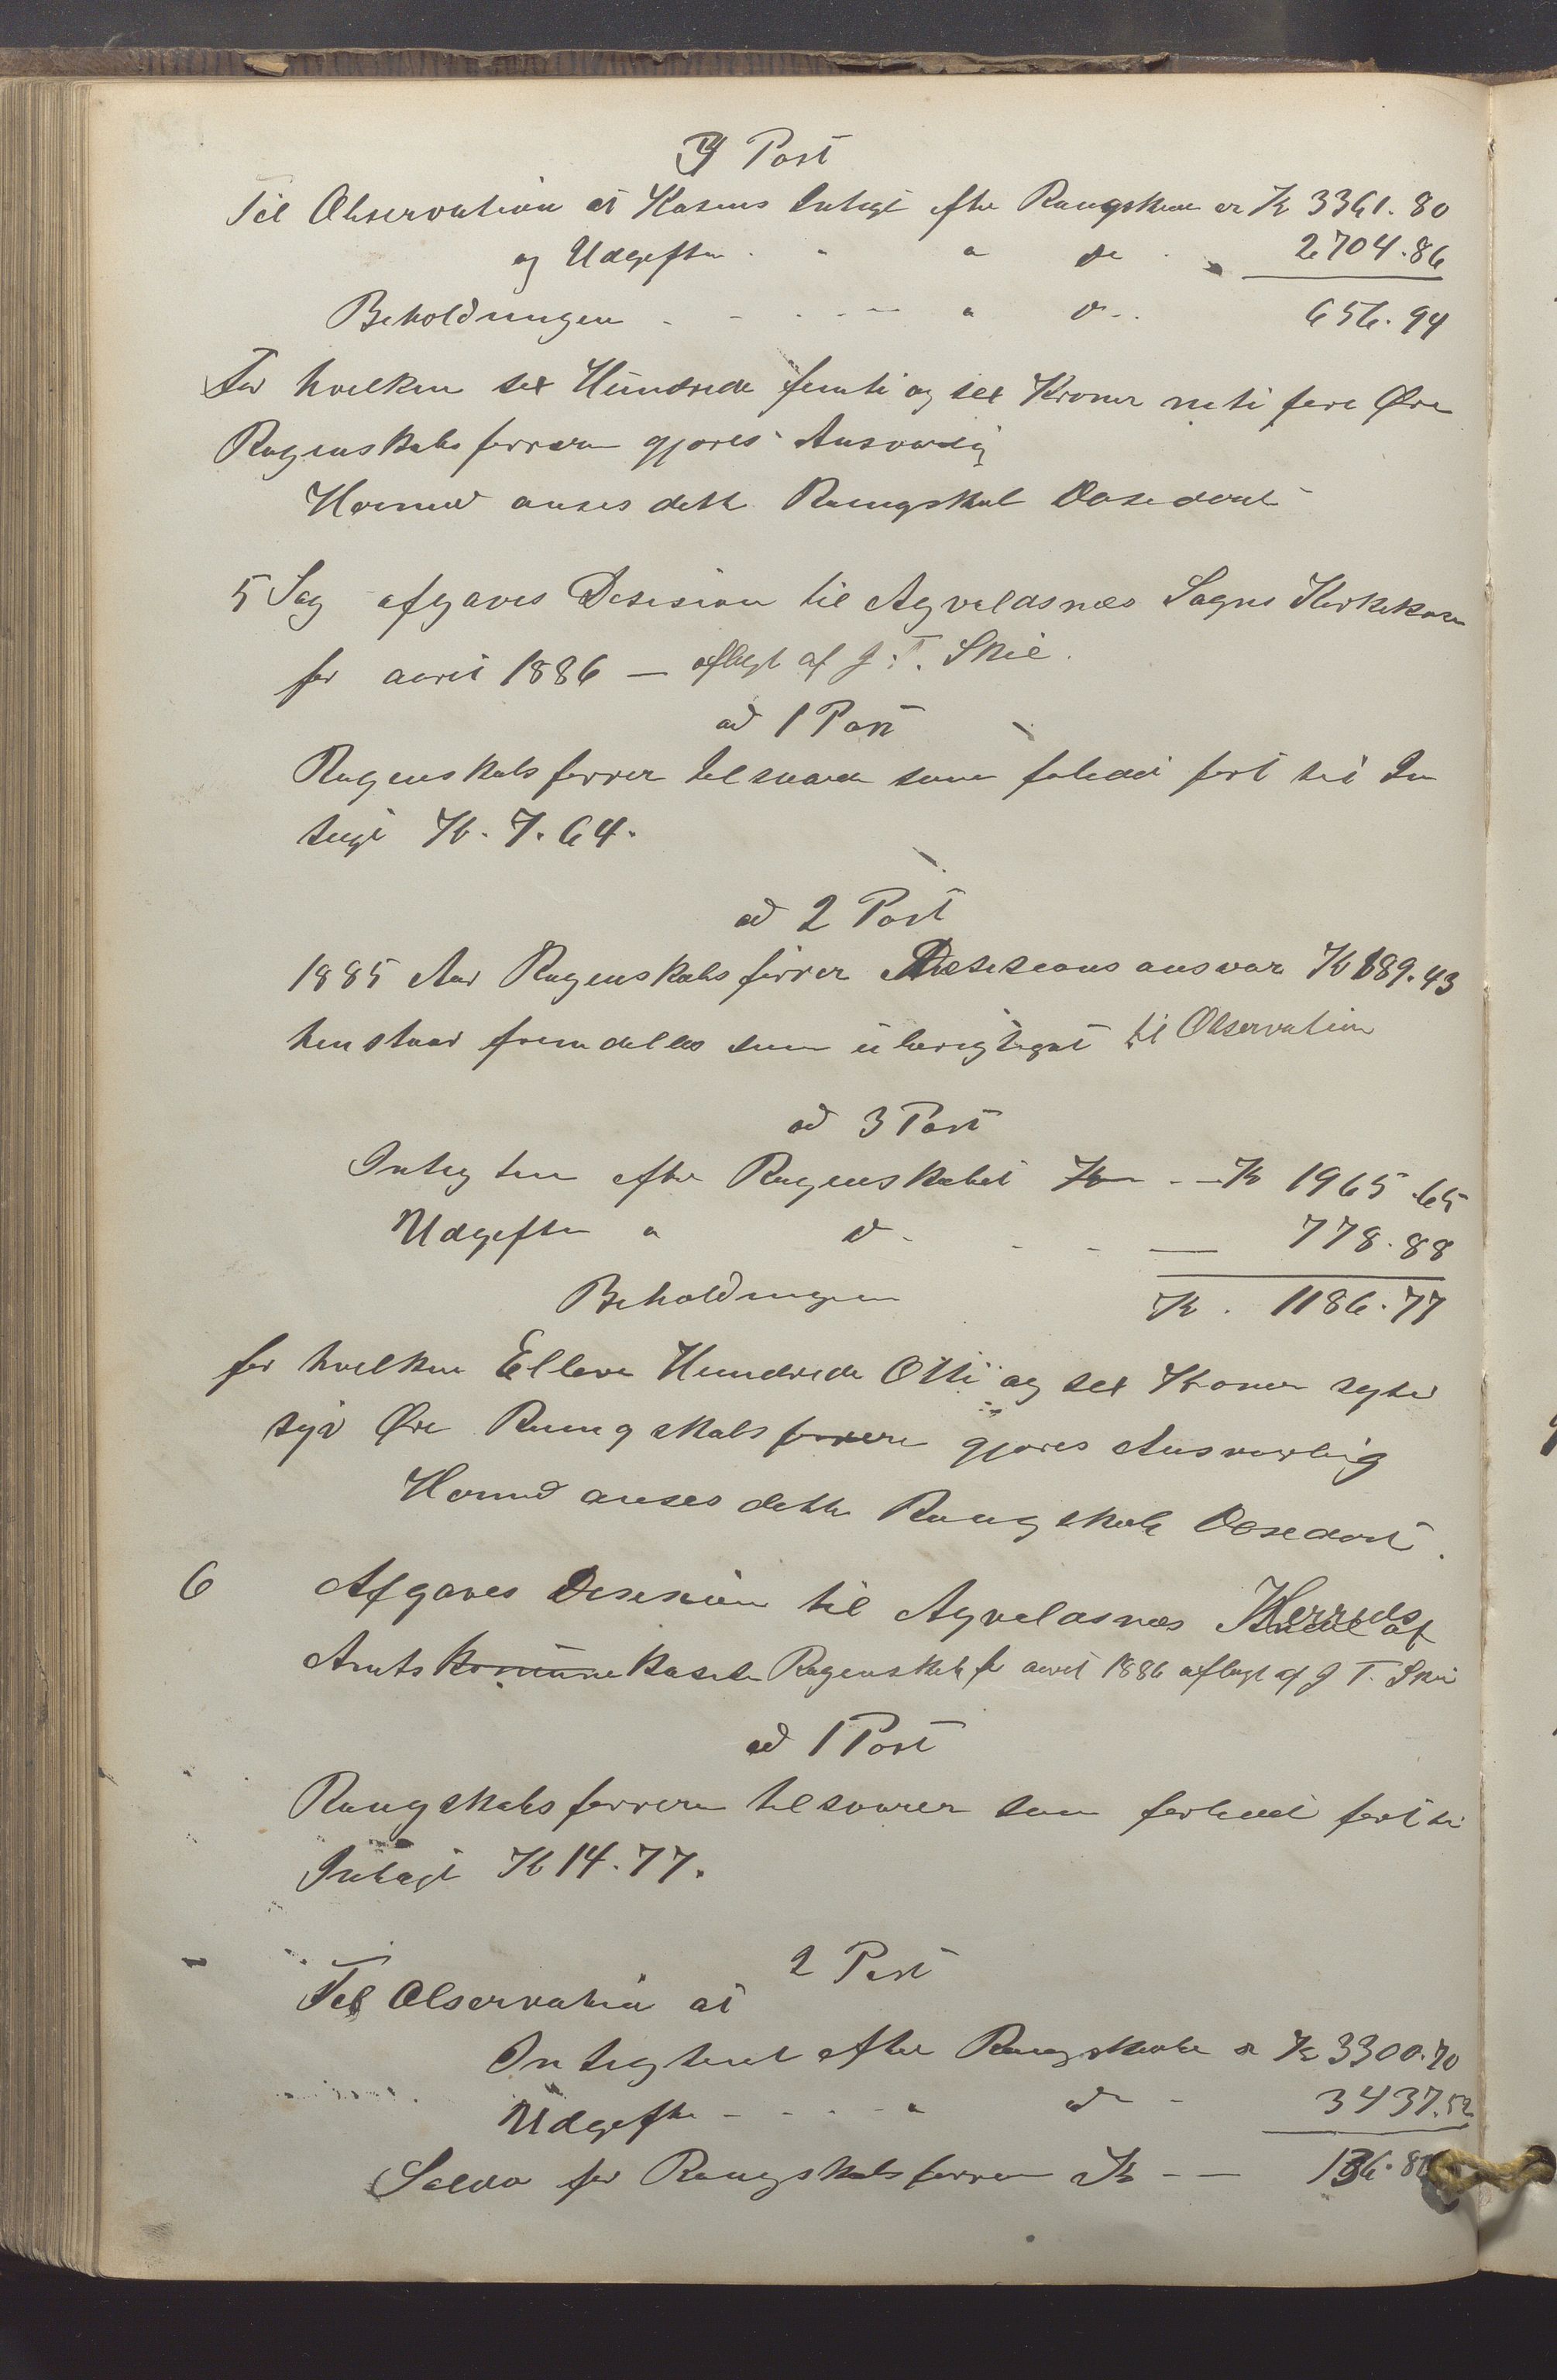 Post
Til Observation at Kasens Integt efter Rængskab er Kr 3361.80
og Udgeften " do 2704.86
Beholdningen " do 656.94
For hvilken sex Hundrede femti og sex Kroner niti fire Øre
Regenskabsførreren gjøres Ansvarlig
Hermed anses dette Rængskab Desederet
5 Sag afgaves Desision til Agvaldsnæs Sogns Kirkekasse
for aaret 1886 — aflagt af J. T. Skie.
ad 1 Post
Regenskabsførrer tilsvarer som foledet ført til In
tegt Kr. 7.64.
ad 2 Post
1885 Aars Regenskabsførrer Desisions ansvar Kr 189.43
henstaar fremdelles som uberigtiget til Observation
ad 3 Post
Integten efter Regenskabet Kr — Kr 1965.65
Udgeften " do — 778.88
Beholdningen Kr. 1186.77
for hvilken Elleve Hundrede Otti og sex Kroner sytti
syv Øre Rængskabsførrere gjøres Ansvarlig
Hermed anses dette Rængskab Desederet.
6 Afgaves Desision til Agvaldsnæs Herreds
Amtskommunekasse Regenskab for aaret 1886 aflagt af J T. Skie
ad 1 Post
Rængskabsførreren tilsvarer som forledet ført til
Intægt Kr 14.77.
2 Post
Til Observation at
Integtene efter Rængskabet er Kr 3300.70
Udgefte " do 3437.52
Saldo for Rængskabsførrer Kr — 136.8